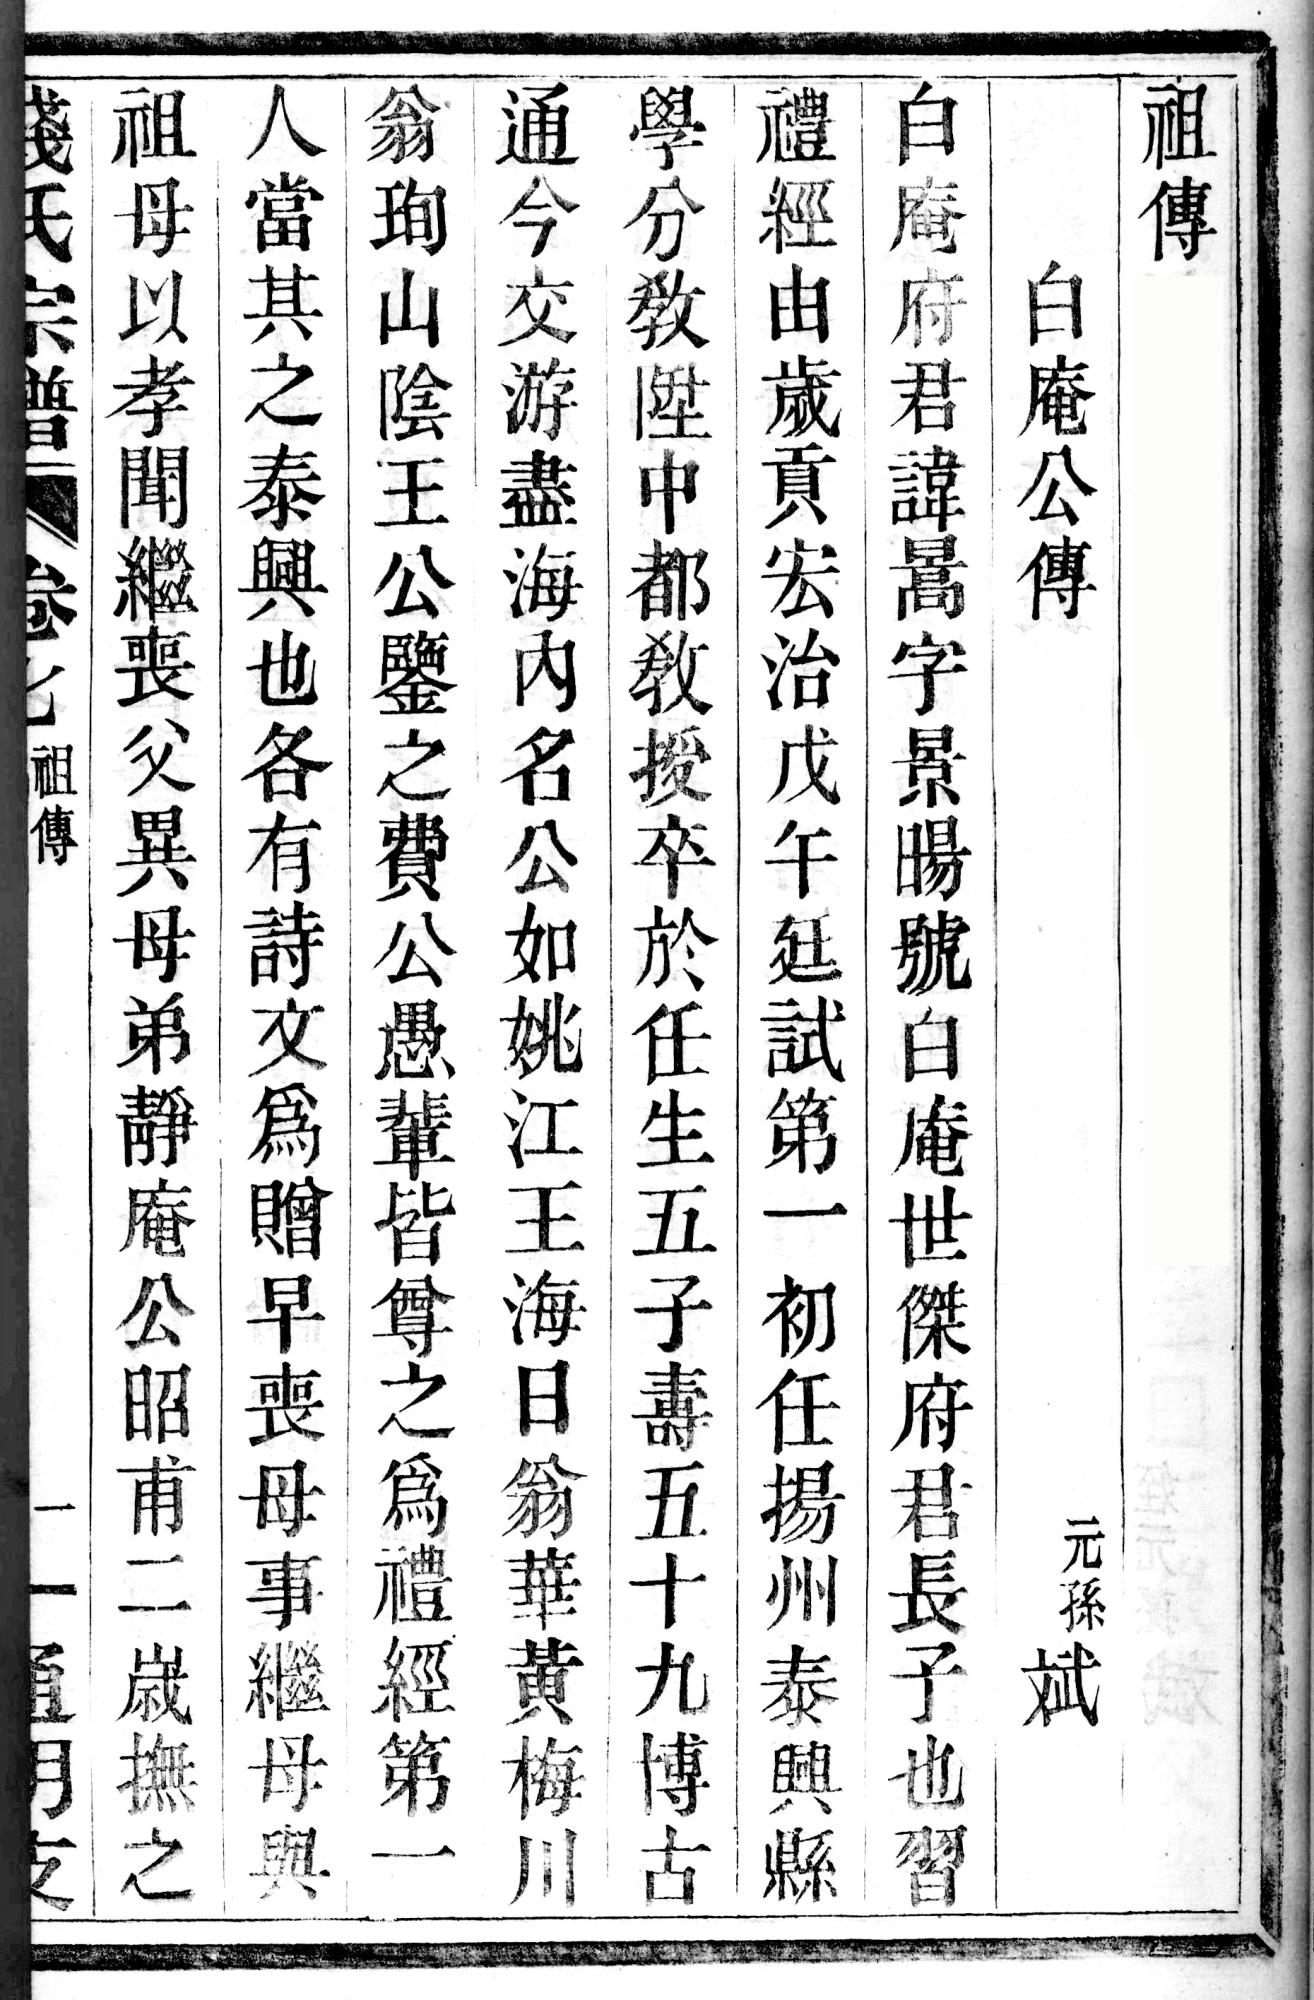 祖傳
白庵公傳
元孫 斌
白庵府君諱暠字景暘號白庵世傑府君長子也習
禮經由歲貢宏治戊午廷試第一初任揚州泰興縣
學分教陞中都教授卒於任生五子壽五十九博古
通今交游盡海內名公如姚江王海日翁華黃梅川
翁珣山陰王公鑒之費公愚輩皆尊之爲禮經第一
人當其之泰興也各有詩文爲贈早喪母事繼母與
祖母以孝聞繼喪父異母弟靜庵公昭甫二歲撫之
錢氏宗譜 卷七 祖傳 一 通明支